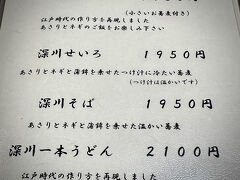 (小さいお蕎麦付き)
江戸時代の作り方を再現しました
あさりとネギのご飯をお楽しみ下さい
深川せいろ 1950円
あさりとネギと蒲鉾を乗せたつけ汁に冷たい蕎麦
(つけ汁は温かいです)
深川そば 1950円
あさりとネギと蒲鉾を乗せた温かい蕎麦
深川一本うどん 2100円
江戸時代の作り方を再現しました